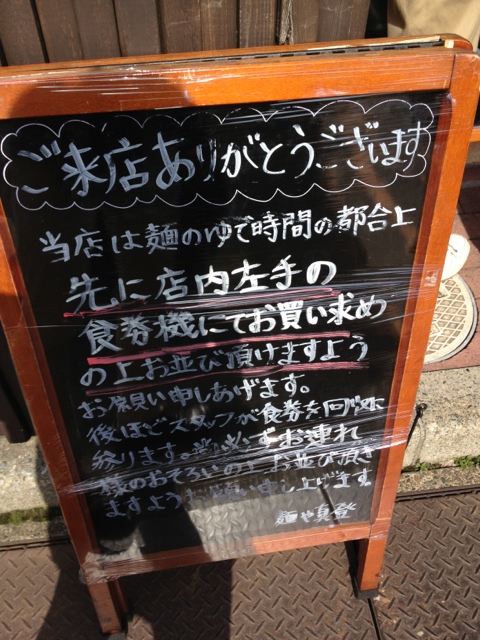 ご来店ありがとうございます
当店は麺のゆで時間の都合上
先に店内左手の
食券機にてお買い求め
の上お並び頂けますよう
お願い申しあげます。
後ほどスタッフが食券を回収に
参ります。必ずお連れ
様のおそろいの上お並び頂き
ますようお願い申し上げます
麺や真登